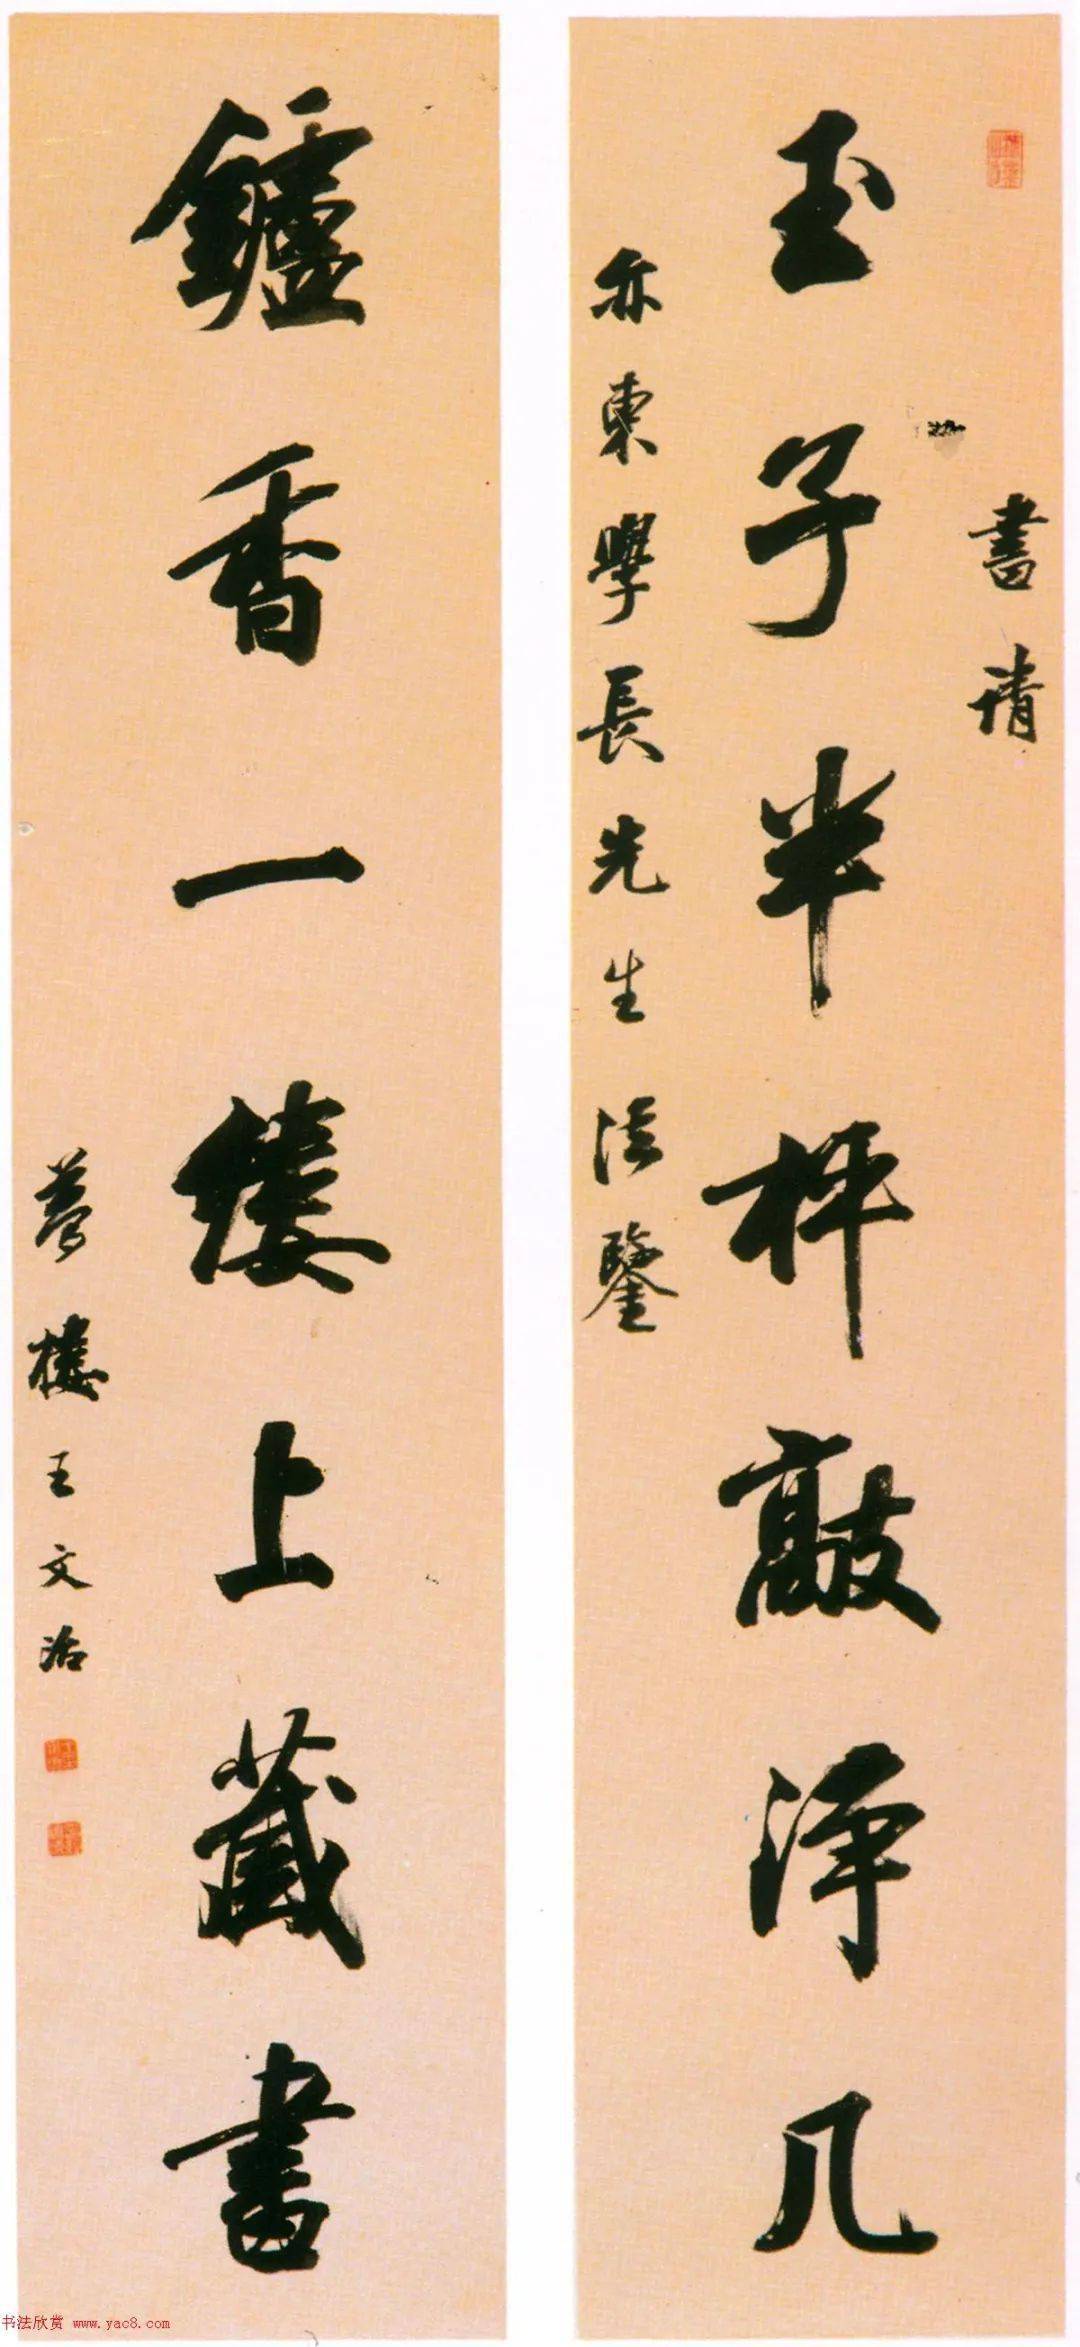 書請
玉子半枰敲淨几
亦東學長先生法鑒
鑪香一縷上藏書
夢樓王文治
书法欣赏 www.yac8.com